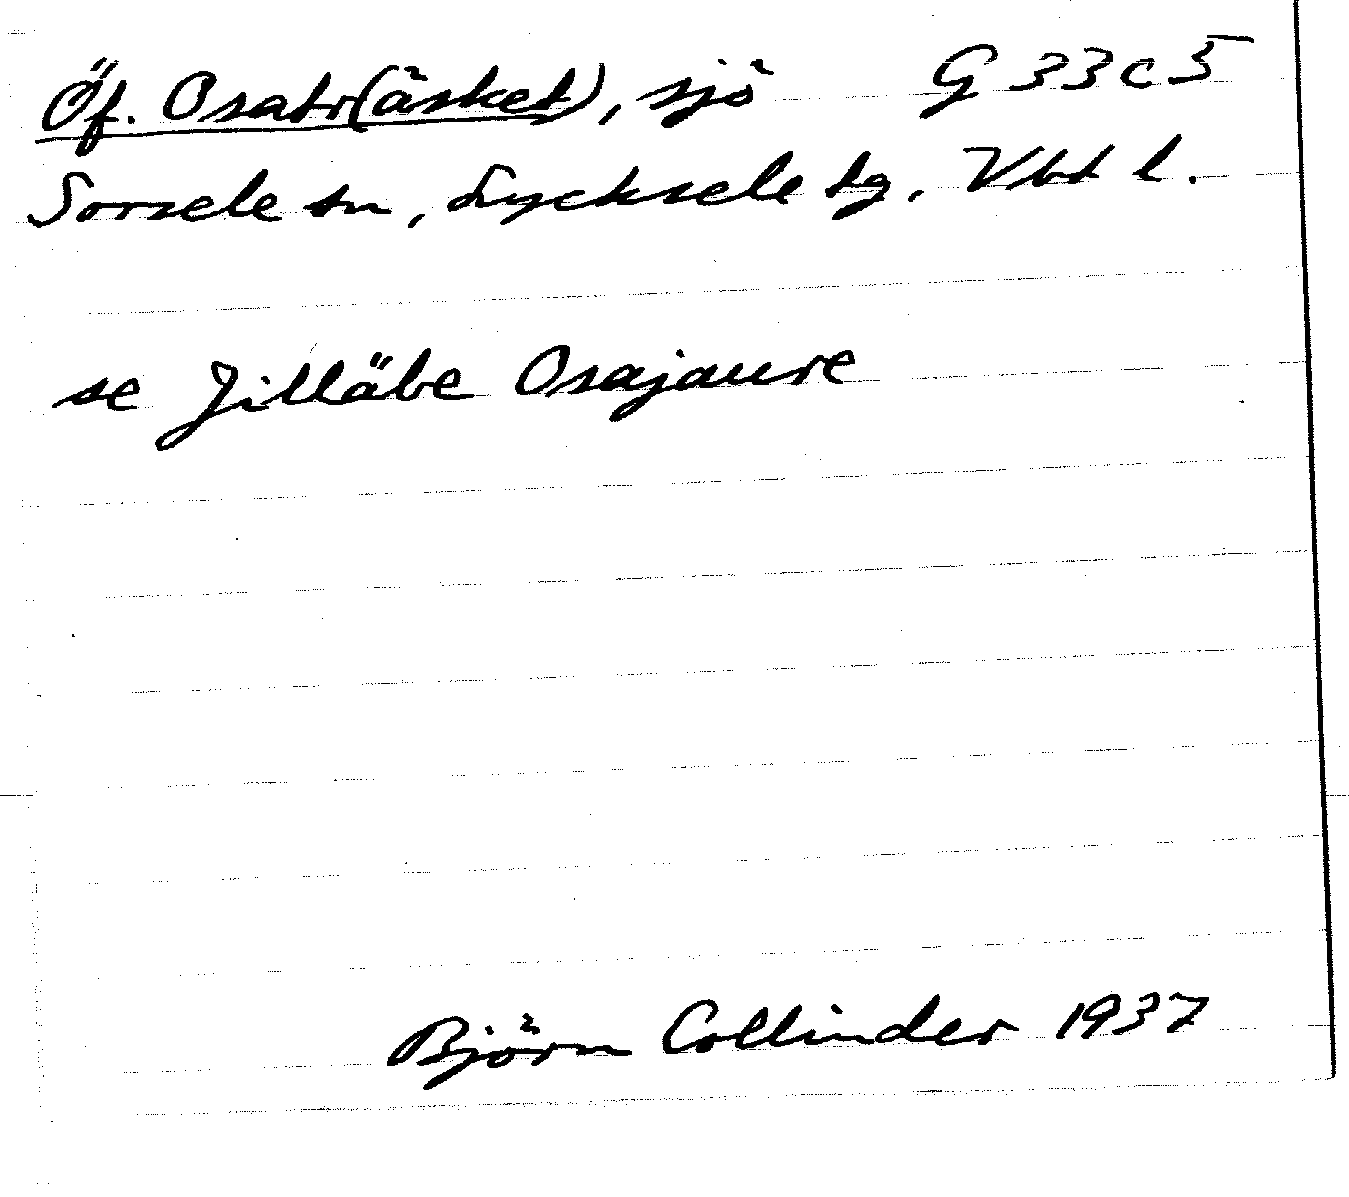 Öf. Osatr(äsket), sjö G 33 c 5
Sorsele sn, Lycksele tg. Vbt l.
se Jilläbe Osajaure
Björn Collinder 1937